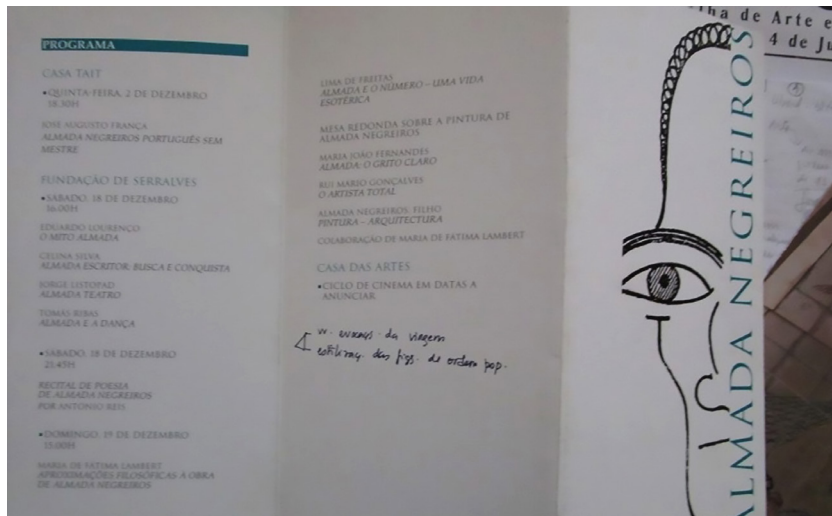 PROGRAMA
CASA TAIT
•QUINTA-FEIRA, 2 DE DEZEMBRO
18.30H
JOSÉ AUGUSTO FRANÇA
ALMADA NEGREIROS PORTUGUÊS SEM
MESTRE
FUNDAÇÃO DE SERRALVES
•SÁBADO, 18 DE DEZEMBRO
16.00H
EDUARDO LOURENÇO
O MITO ALMADA
CELINA SILVA
ALMADA ESCRITOR: BUSCA E CONQUISTA
JORGE LISTOPAD
ALMADA TEATRO
TOMÁS RIBAS
ALMADA E A DANÇA
•SÁBADO, 18 DE DEZEMBRO
21.45H
RECITAL DE POESIA
DE ALMADA NEGREIROS
POR ANTÓNIO REIS
•DOMINGO, 19 DE DEZEMBRO
15.00H
MARIA DE FÁTIMA LAMBERT
APROXIMAÇÕES FILOSÓFICAS À OBRA
DE ALMADA NEGREIROS
LIMA DE FREITAS
ALMADA E O NÚMERO – UMA VIDA
ESOTÉRICA
MESA REDONDA SOBRE A PINTURA DE
ALMADA NEGREIROS
MARIA JOÃO FERNANDES
ALMADA: O GRITO CLARO
RUI MÁRIO GONÇALVES
O ARTISTA TOTAL
ALMADA NEGREIROS, FILHO
PINTURA – ARQUITECTURA
COLABORAÇÃO DE MARIA DE FÁTIMA LAMBERT
CASA DAS ARTES
•CICLO DE CINEMA EM DATAS A
ANUNCIAR
da viagem
das figs. de ordem pop.
ALMADA NEGREIROS
de Arte e
4 de Ju